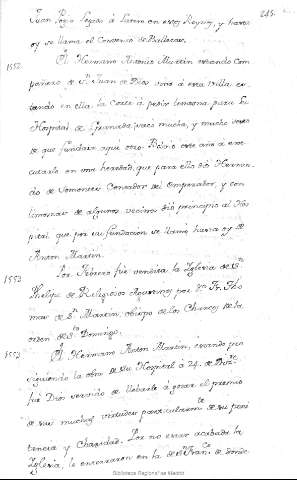 245.
Juan Legado á Latere en estos Reynos, y hasta
oy se llama el Convento de Ballecas.
1552. El Hermano Antonio Martin estando Com
pañero de Sn. Juan de Dios vino á esta Villa es
tando en ella la Corte á pedir limosna para su
Hospital de Granada, sacó mucha, y mucho
de que fundara aqui otro. este año á exe
cutarlo en una heredad, que para ello dió Hernan
do de Somontes Contador del Emperador, y con
limosnas de algunos vecinos dió principio al Hos
pital que por su fundacion se llamó hasta oy de
Anton Martin.
1552 Por Febrero fue vendita la Iglesia de Sn.
Phelipe de Religiosos Agustinos por Dn. Fr. Tho
mas de Sn. Martin, obispo de los Charcas de la
orden de Sto. Domingo.
1553 El Hermano Anton Martin, estando pro
siguiendo la obra de su Hospital á 24. de Dizre.
fué Dios servido de llebarle á gozar el premio
de sus muchas virtudes particularmte. de su peni
tencia y Charidad. Por no estar acabada la
Iglesia, le enterraron en la de Sn. Franco. de donde
Biblioteca Regional de Madrid